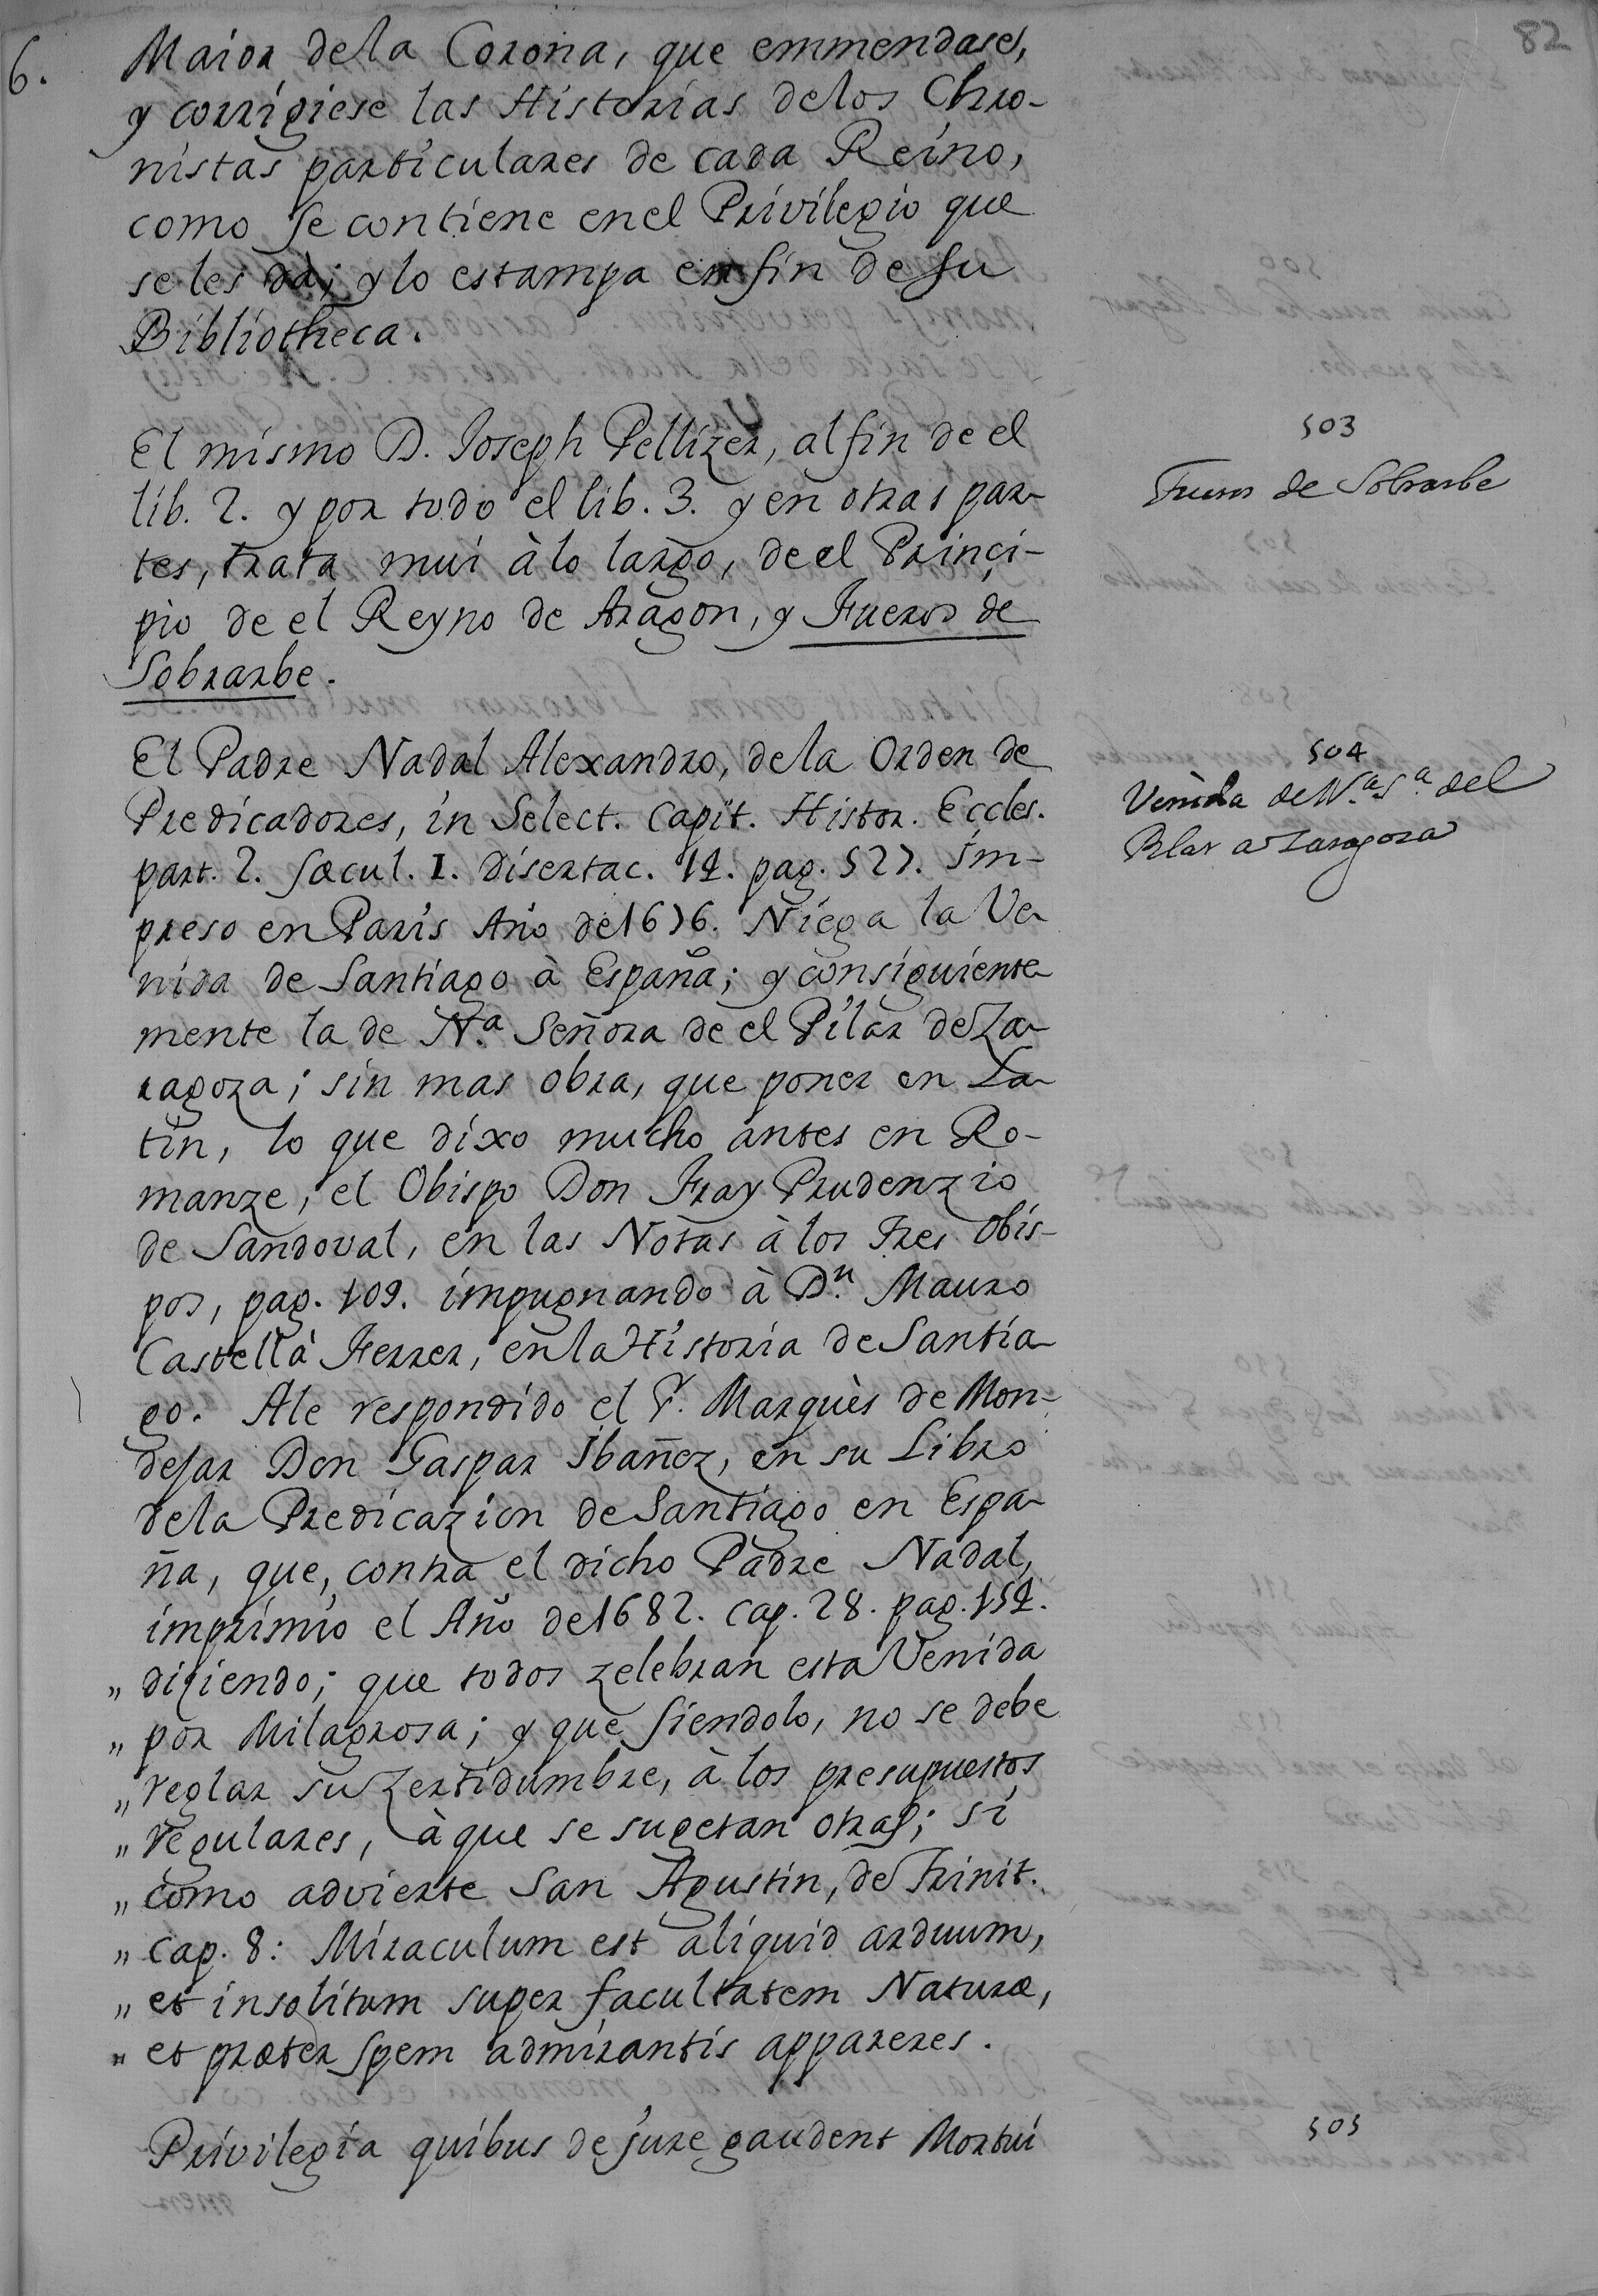 82
6.
Maior dela Corona, que emmendases,
y corrigiese las Historias delos Chro-
nistas particulares de cada Reino,
como se contiene enel Privilegio que
se les dà; y lo estampa en fin de su
Bibliotheca.
El mismo D. Joseph Pellizer, al fin de el
lib. 2. y por todo el lib. 3. y en otras par-
tes, trata mui à lo largo, de el Prinçi-
pio de el Reyno de Aragon, y Fueros de
Sobrarbe.
503
Fueros de Sobrarbe
El Padre Nadal Alexandro, dela Orden de
Predicadores, in Select. Capit. Histor. Eccles.
part. 2. sæcul. I. Disertac. 14. pag. 527. Im-
preso en Paris Año de 1676. Niega la Ve-
nida de Santiago à España; y consiguiente-
mente la de N.ª Señora de el Pilar de Za-
ragoza; sin mas obra, que poner en La-
tin, lo que dixo mucho antes en Ro-
manze, el Obispo Don Fray Prudenzio
de Sandoval, en las Notas à los Tres Obis-
pos, pag. 109. impugnando à D.n Mauro
Castellà Ferrer, en la Historia de Santia-
go. Ale respondido el S. Marquès de Mon-
dejar Don Gaspar Ibañez, en su Libro
dela Predicazion de Santiago en Espa-
ña, que, contra el dicho Padre Nadal,
imprimiò el Año de 1682. cap. 28. pag. 154.
„ diziendo; que todos zelebran esta Venida
„ por Milagrosa; y que siendolo, no se debe
„ reglar su Zertidumbre, à los presupuestos
„ regulares, à que se sugetan otras; si
„ como advierte San Agustin, de Trinit.
„ cap. 8: Miraculum est aliquid arduum,
„ et insolitum super facultatem Naturæ,
„ et præter spem admirantis appareres.
504
Venida de N.ª S.ª del
Pilar a Zaragoza
Privilegia quibus de jure gaudent Mortui
505